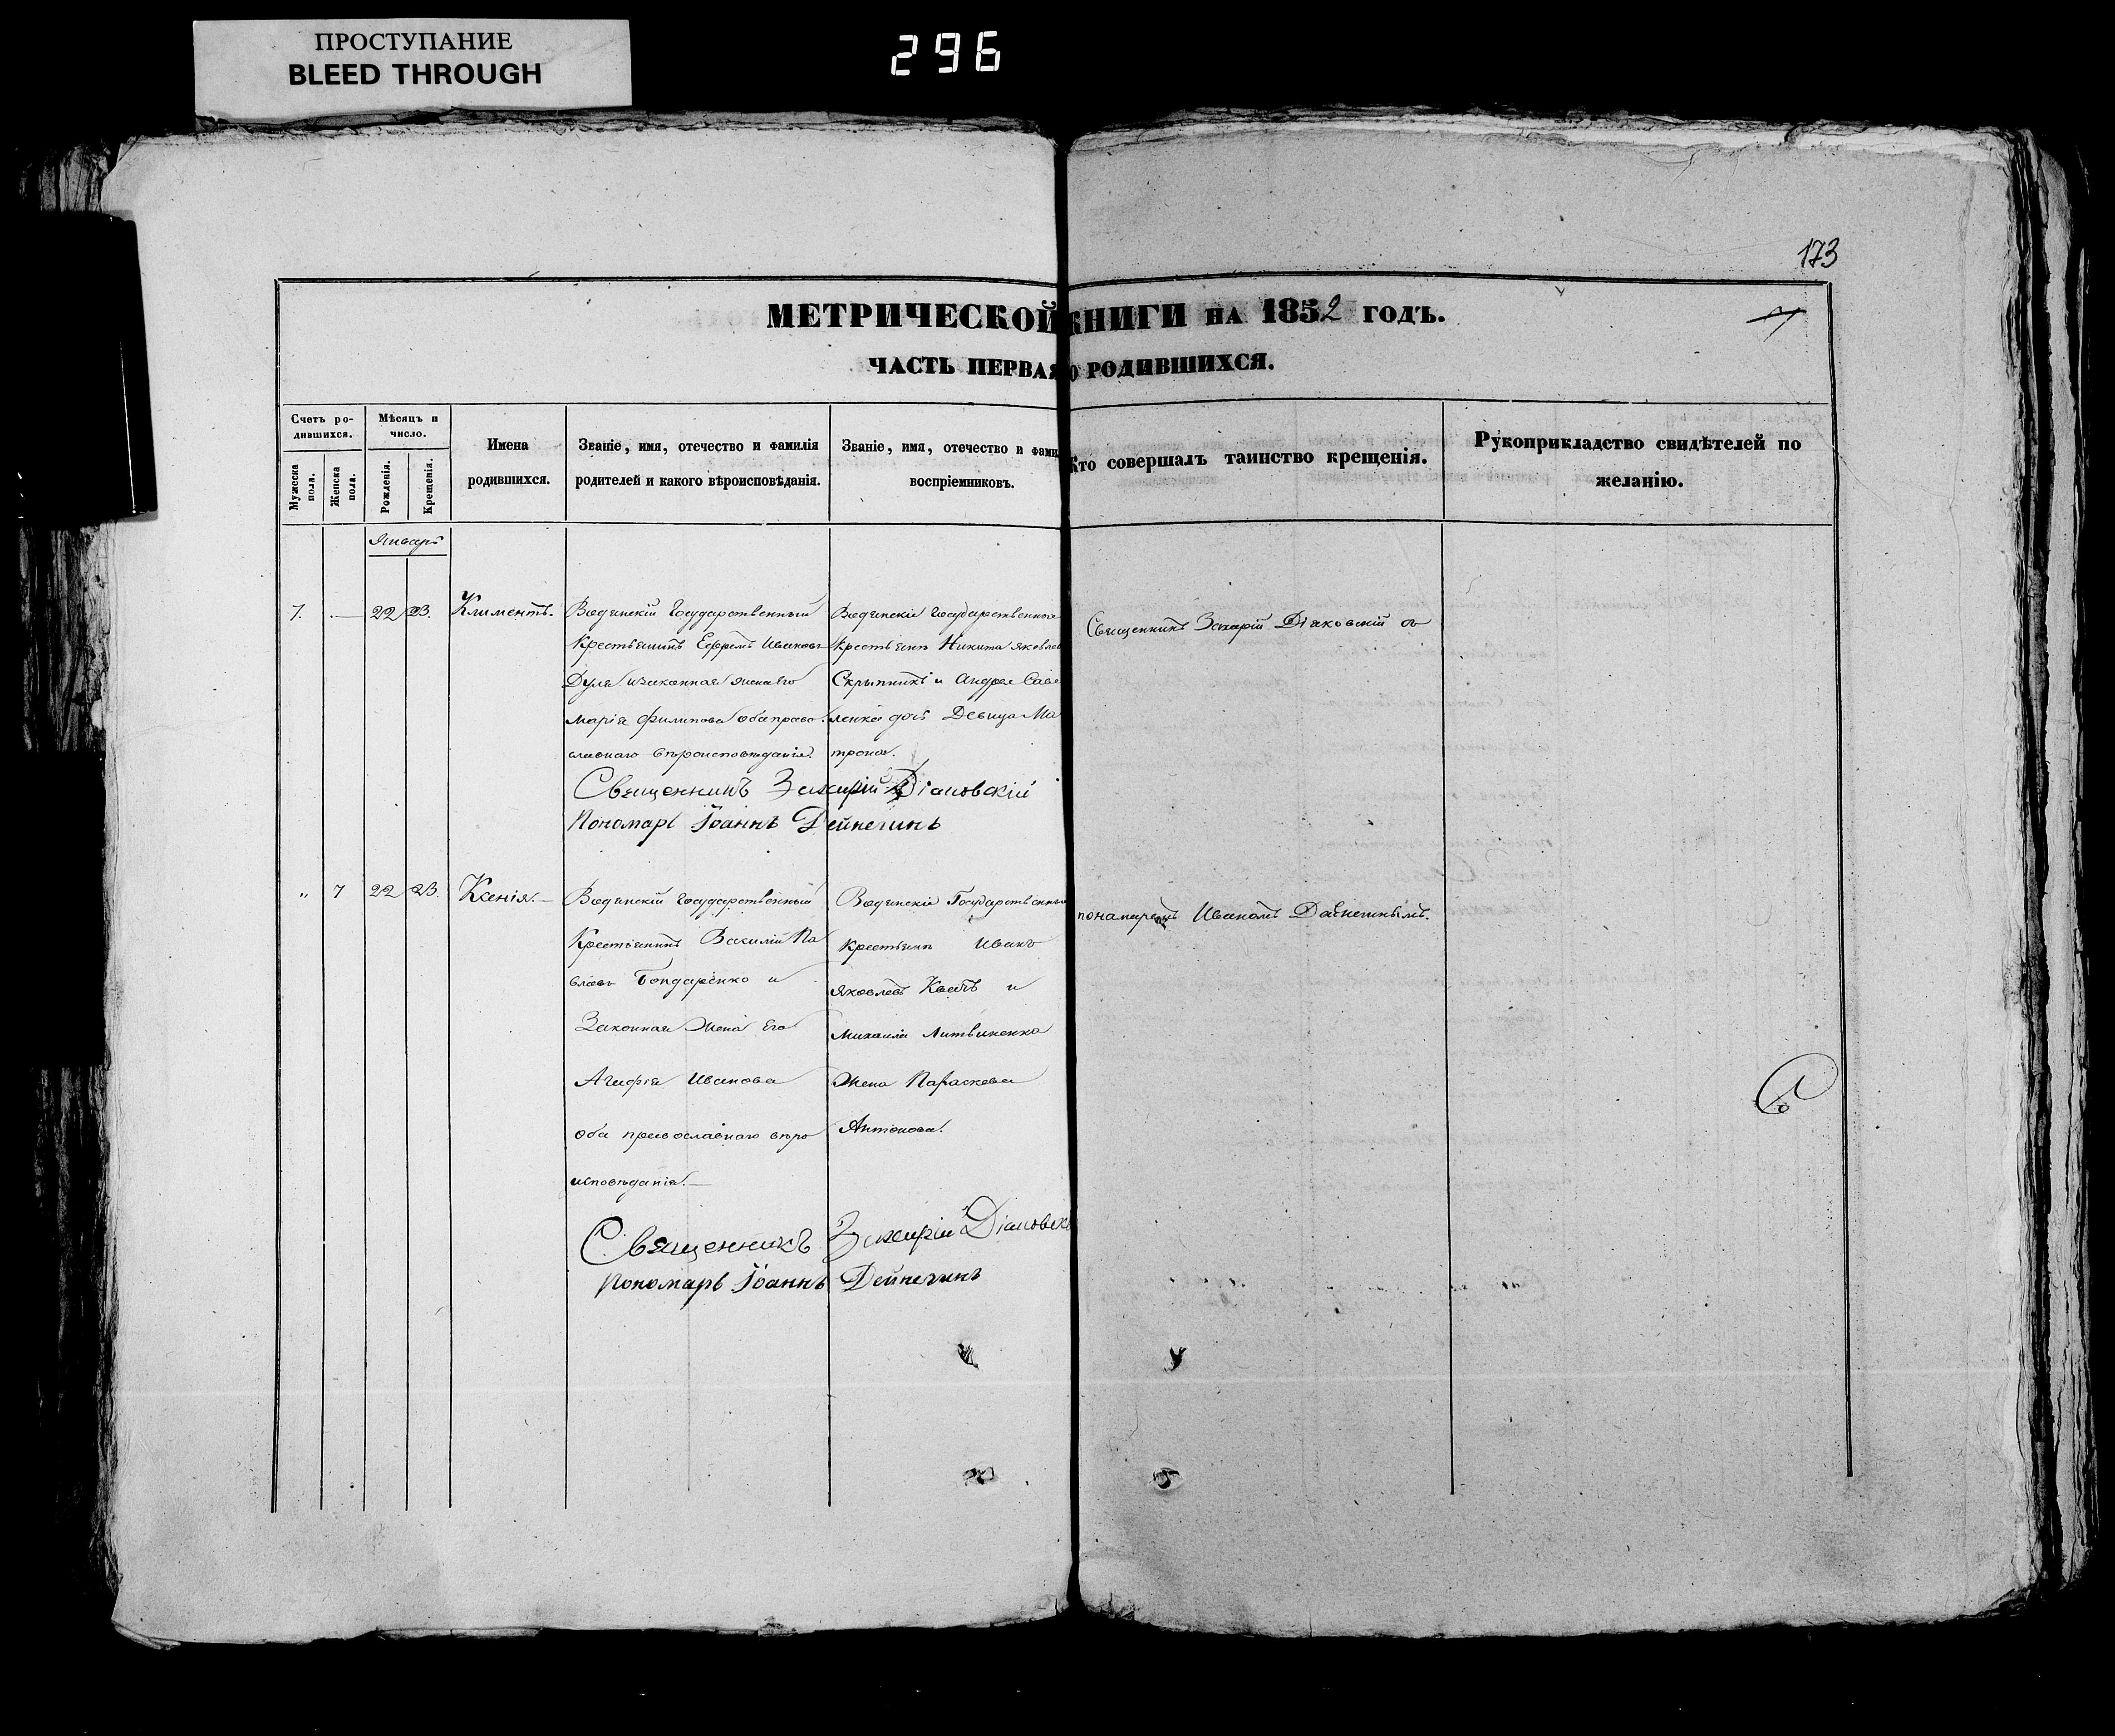 ПРОСТУПАНИЕ
BLEED THROUGH
296
173
МЕТРИЧЕСКОЙ КНИГИ НА 1852 ГОДЪ.
ЧАСТЬ ПЕРВАЯ О РОДИВШИХСЯ.
Счетъ ро-
дившихся.
Мужеска
пола.
Женска
пола.
Мѣсяцъ и
число.
Рожденія.
Крещенія.
Имена
родившихся.
Званіе, имя, отечество и фамилія
родителей и какого вѣроисповѣданія.
Званіе, имя, отечество и фами
воспріемниковъ.
Кто совершалъ таинство крещенія.
Рукоприкладство свидѣтелей по
желанію.
Январь
7. — 22 23. Климентъ.
Государственный
Крестьянинъ Ефремъ Ивановъ
Дуля и законная жена его
Марія Филипова оба право-
славнаго вѣроисповѣданія.
Государственный
Крестьянъ Никита Яковлев
Скрыпникъ и Андрея Саве
ленка дочь Девица Ма
трона.
Священникъ Захарій Діаковскій съ
Священникъ Захарій Діаковскій
Пономарь Іоаннъ Дейнегинъ
" 7 22 23. Ксенія.—
Государственный
Крестьянинъ Василій Па
вловъ Бондаренко и
Законная Жена Его
Агафія Иванова
оба православнаго вѣро
исповѣданія.—
Государственны
Крестьянъ Иванъ
Яковлевъ Квятъ и
Михаила Литвиненка
Жена Параскева
Антонова.
понамаремъ Иваномъ
Священникъ Захарій Діаковскі
Пономарь Іоаннъ Дейнегинъ